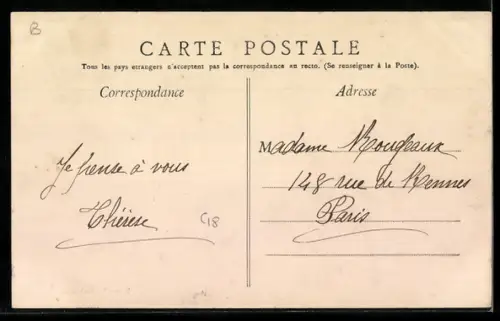 B
CARTE POSTALE
Tous les pays etrangers n'acceptent pas la correspondance en recto. (Se renseigner à la Poste).
Correspondance
Adresse
Je pense à vous
Thérèse
C18
Madame Rougeaux
148 rue de Rennes
Paris